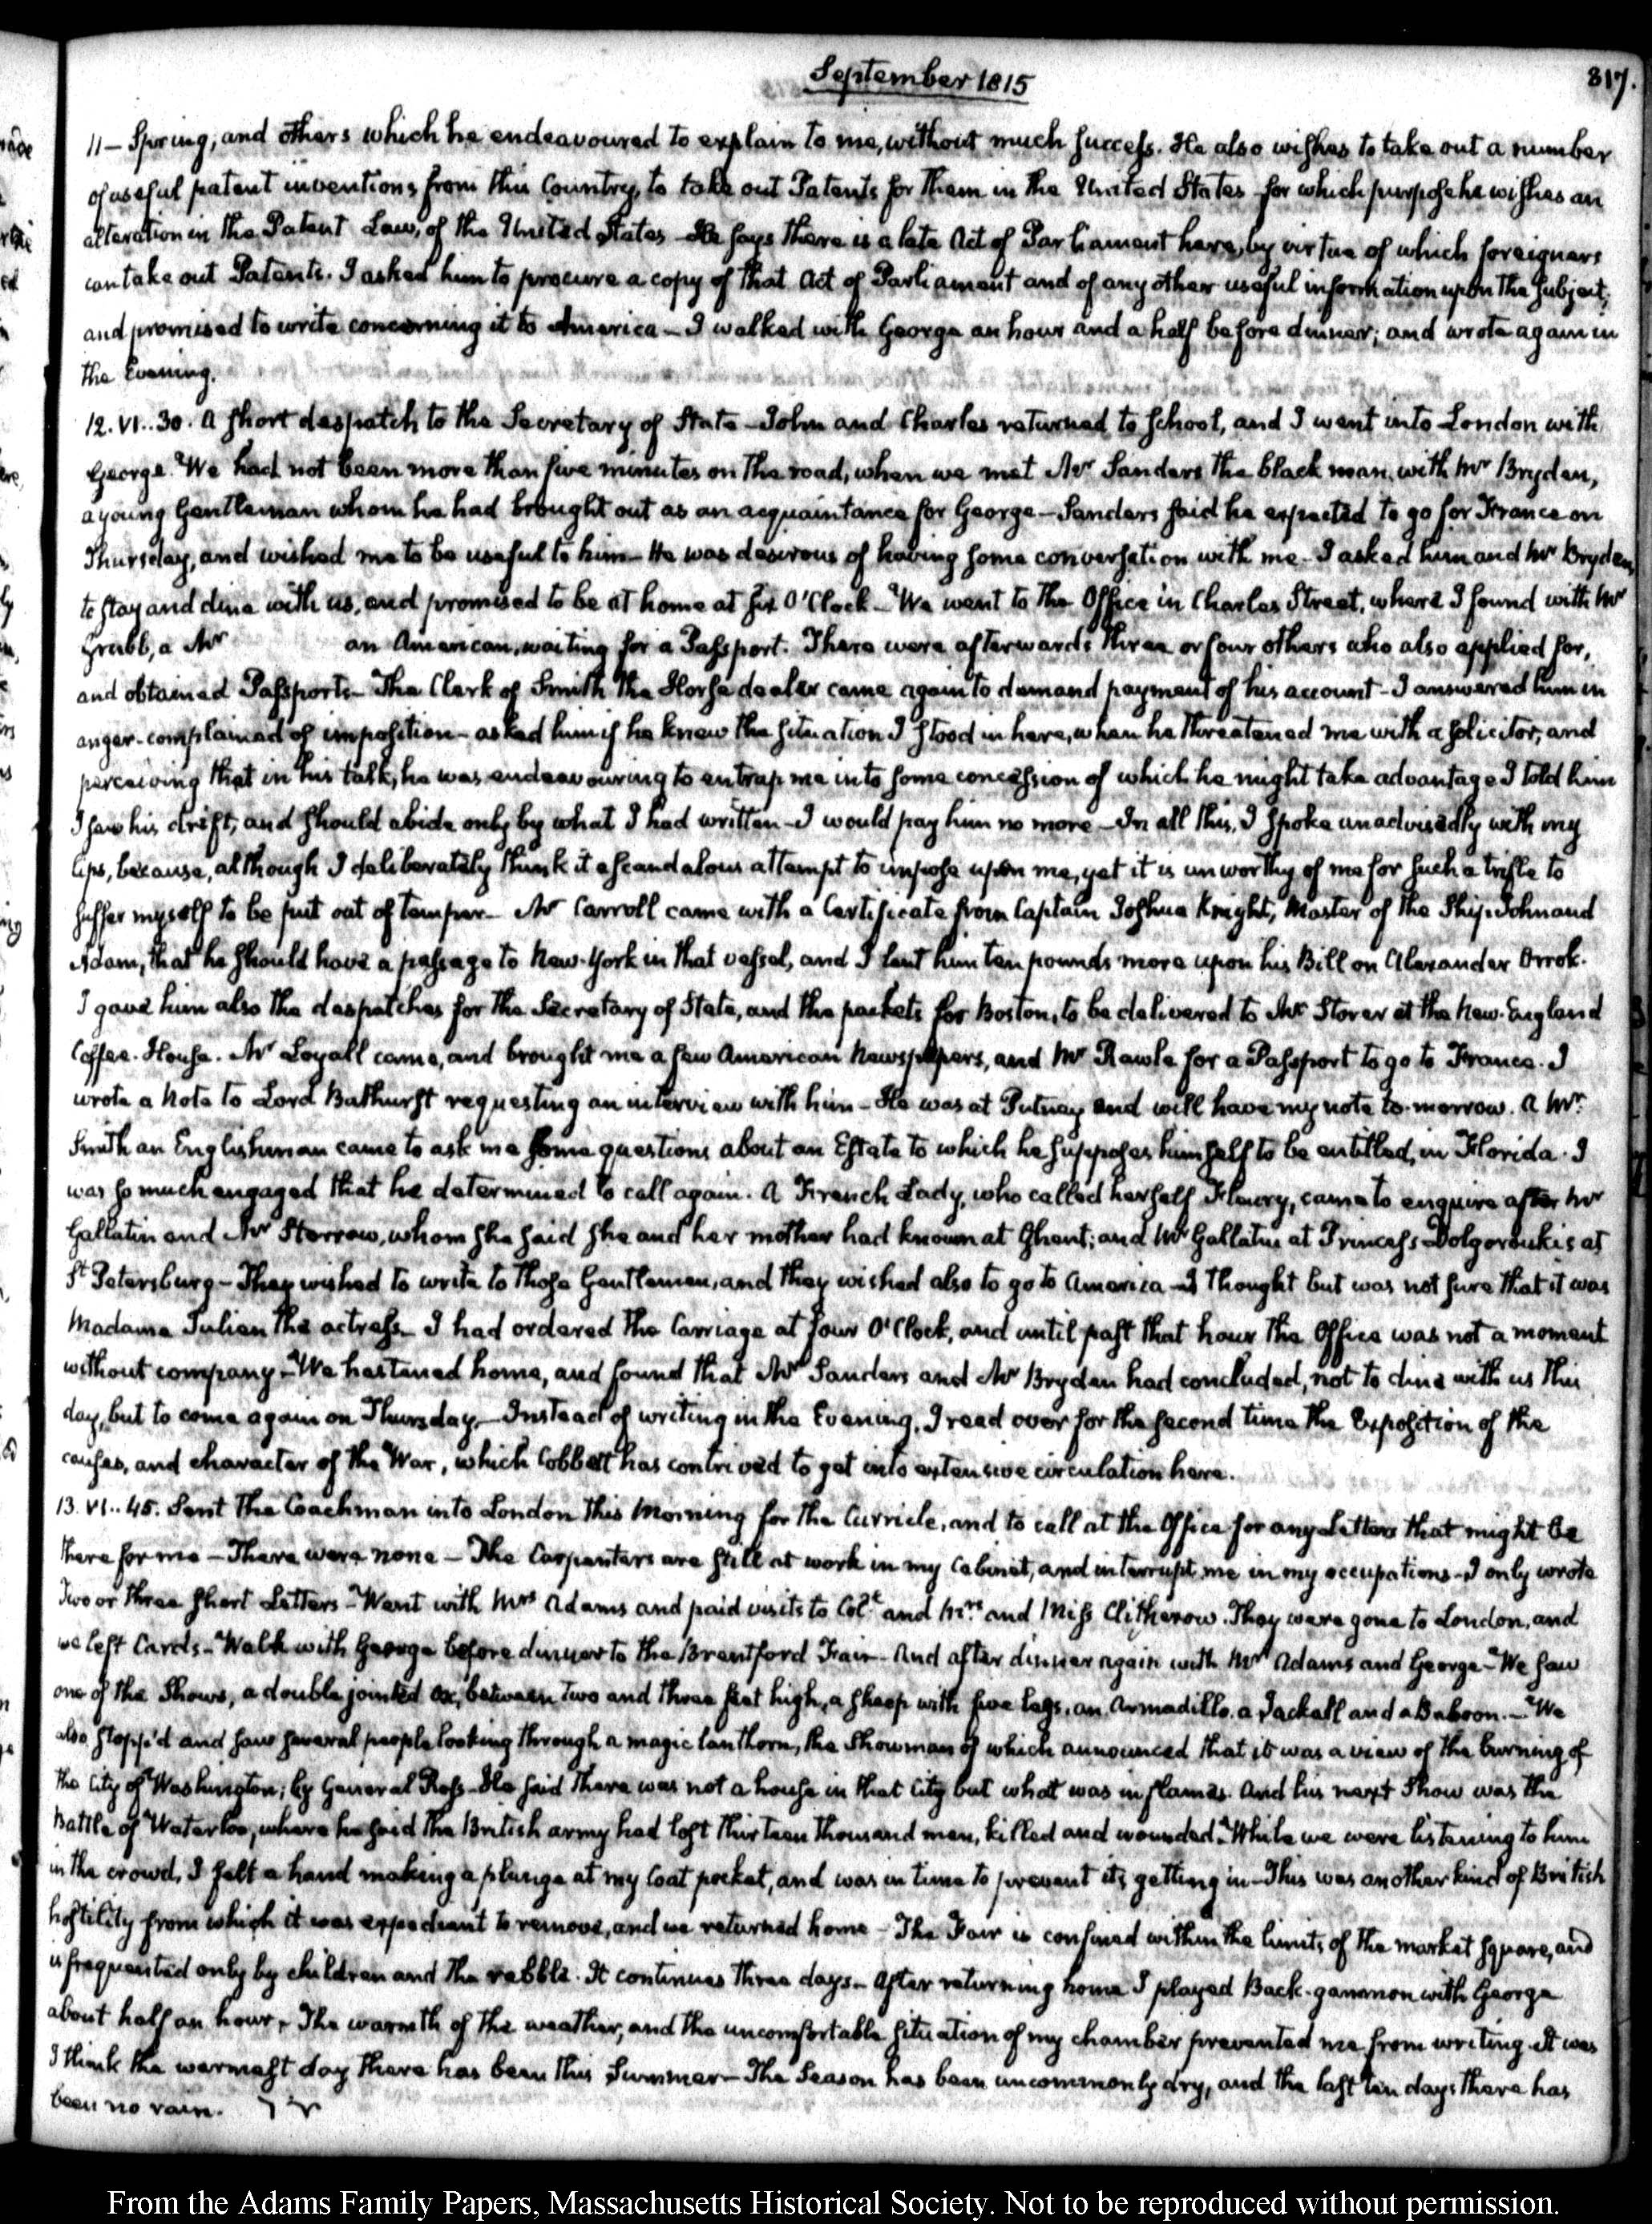 September 1815
317.
11 — Spring, and others which he endeavoured to explain to me, without much success. He also wishes to take out a number
of useful patent inventions from this Country, to take out Patents for them in the United States for which purpose he wishes an
alteration in the Patent Laws, of the United States — He says there is a late Act of Parliament here, by virtue of which foreigners
can take out Patents. I asked him to procure a copy of that Act of Parliament and of any other useful information upon the subject;
and promised to write concerning it to America — I walked with George an hour and a half before dinner; and wrote again in
the Evening.
12. VI..30. A short despatch to the Secretary of State — John and Charles returned to School, and I went into London with
George. We had not been more than five minutes on the road, when we met Mr Sanders the black man, with Mr Bryden,
a young Gentleman whom he had brought out as an acquaintance for George — Sanders said he expected to go for France on
Thursday, and wished me to be useful to him — He was desirous of having some conversation with me — I asked him and Mr Bryden,
to stay and dine with us, and promised to be at home at six O'Clock — We went to the Office in Charles Street, where I found with Mr
Grubb, a Mr an American, waiting for a Passport. There were afterwards three or four others who also applied for,
and obtained Passports — The Clerk of Smith the Horse dealer came again to demand payment of his account — I answered him in
anger — complained of imposition — asked him if he knew the situation I stood in here, when he threatened me with a solicitor, and
perceiving that in his talk, he was endeavouring to entrap me into some concession of which he might take advantage I told him
I saw his drift, and should abide only by what I had written — I would pay him no more — In all this, I spoke unadvisedly with my
lips, because, although I deliberately think it a scandalous attempt to impose upon me, yet it is unworthy of me for such a trifle to
suffer myself to be put out of temper — Mr Carroll came with a Certificate from Captain Joshua Knight, Master of the Ship John and
Adam, that he should have a passage to New-York in that vessel, and I lent him ten pounds more upon his Bill on Alexander Orrok.
I gave him also the despatches for the Secretary of State, and the packets for Boston, to be delivered to Mr Storer at the New-England
Coffee-House. Mr Loyall came, and brought me a few American Newspapers, and Mr Rawle for a Passport to go to France. I
wrote a Note to Lord Bathurst requesting an interview with him — He was at Putney and will have my note to-morrow. A Mr.
Smith an Englishman came to ask me some questions about an Estate to which he supposes himself to be entitled, in Florida. I
was so much engaged that he determined to call again. A French Lady, who called herself Fleury, came to enquire after Mr
Gallatin and Mr Storrow, whom she said she and her mother had known at Ghent; and Mr Gallatin at Princess Dolgoroukis at
St Petersburg — They wished to write to those Gentlemen, and they wished also to go to America — I thought but was not sure that it was
Madame Julien the actress — I had ordered the Carriage at four O'Clock, and until past that hour the Office was not a moment
without company — We hastened home, and found that Mr Sanders and Mr Bryden had concluded, not to dine with us this
day, but to come again on Thursday — Instead of writing in the Evening, I read over for the second time the Exposition of the
causes, and character of the War, which Cobbett has contrived to get into extensive circulation here.
13. VI..45. Sent the Coachman into London this Morning for the Curricle, and to call at the Office for any Letters that might be
there for me — There were none — The Carpenters are still at work in my Cabinet, and interrupt me in my occupations — I only wrote
two or three short Letters — Went with Mrs Adams and paid visits to Col. and Mrs and Miss Clitherow. They were gone to London, and
we left Cards — Walk with George before dinner to the Brentford Fair — And after dinner again with Mrs Adams and George — We saw
one of the Shows, a double jointed ox, between two and three feet high, a sheep with five legs, an Armadillo, a Jackall and a Baboon. — We
also stopp'd and saw several people looking through a magic lanthorn, the Showman of which announced that it was a view of the burning of
the City of Washington; by General Ross — He said there was not a house in that City but what was in flames. And his next Show was the
Battle of Waterloo, where he said the British army had lost thirteen thousand men, killed and wounded. While we were listening to him
in the crowd, I felt a hand making a plunge at my Coat pocket, and was in time to prevent its getting in — This was another kind of British
hostility from which it was expedient to remove, and we returned home — The Fair is confined within the limits of the market square, and
is frequented only by children and the rabble. It continues three days — After returning home I played Back-gammon with George
about half an hour — The warmth of the weather, and the uncomfortable situation of my chamber prevented me from writing. It was
I think the warmest day there has been this Summer — The Season has been uncommonly dry, and the last ten days there has
been no rain.
From the Adams Family Papers, Massachusetts Historical Society. Not to be reproduced without permission.